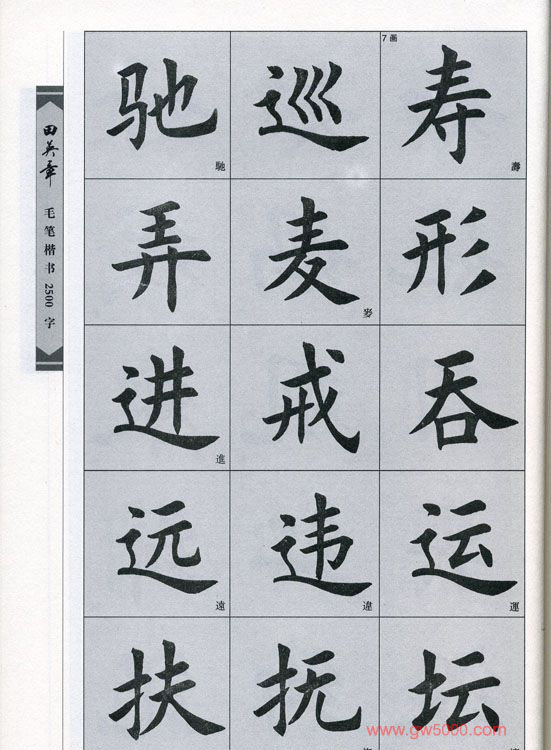 7画
驰 巡 寿
馳 壽
弄 麦 形
麥
进 戒 吞
進
远 违 运
遠 違 運
扶 抚 坛
田英章
毛笔楷书2500字
www.gw5000.com